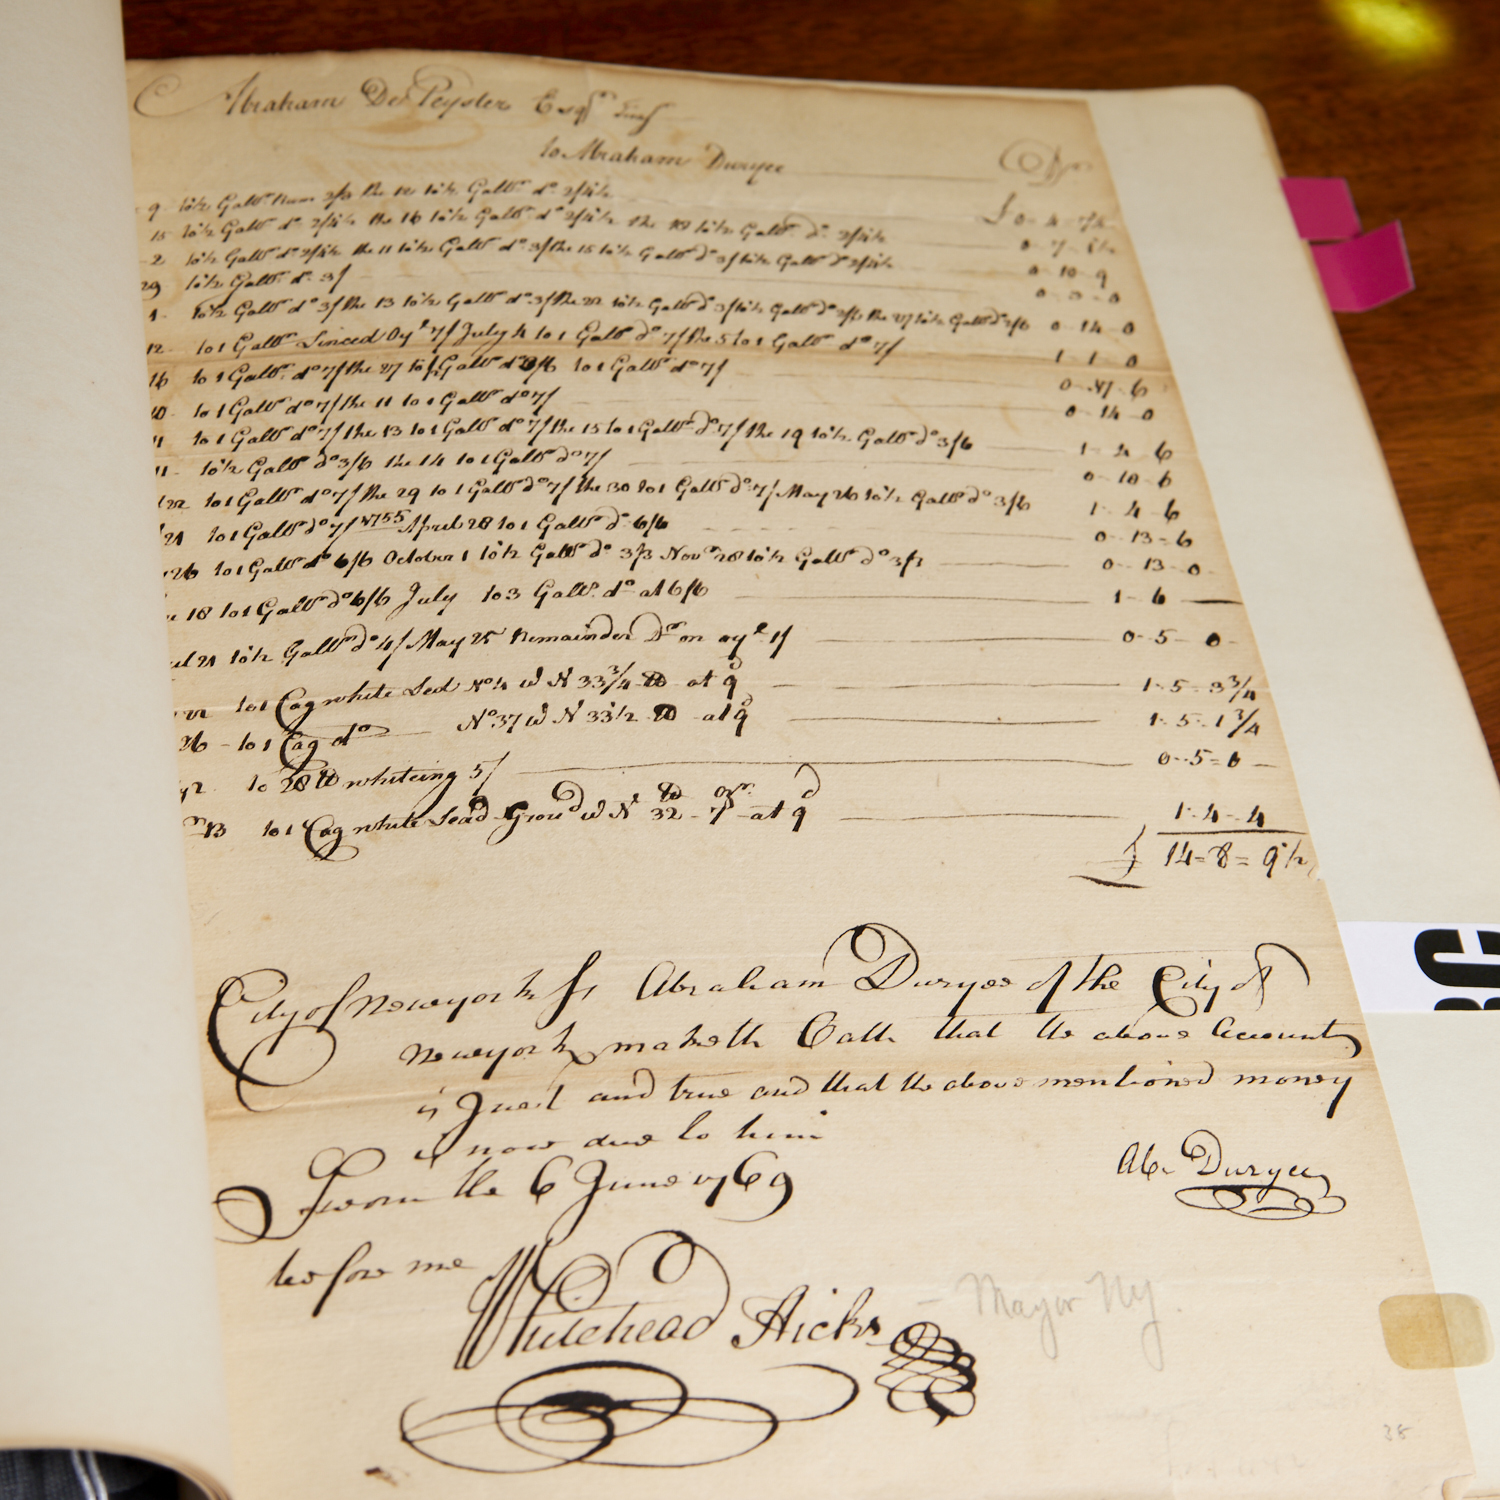 Abraham De Peyster Esqr
to Abraham Duryee Dr
9 to ½ Galln Rum 2/3 the 12 to ½ Galln do 2/4½ £ 0-4-7½
15 to ½ Galln do 2/4½ the 16 to ½ Galln do 2/4½ the 18 to ½ Galln do 2/4½ 0-7-1½
2 to ½ Galln do 2/4½ the 11 to ½ Galln do 3/ the 15 to ½ Galln do 3/ to ½ Galln do 2/4½ 0-10-9
29 to ½ Galln do 3/ 0-3-0
1 to ½ Galln do 3/ the 13 to ½ Galln do 3/ the 22 to ½ Galln do 3/ to ½ Galln do 2/6 the 27 to ½ Galln do 2/6 0-14-0
12 to 1 Galln Linced Oyl 7/ July 4 to 1 Galln do 7/ the 5 to 1 Galln do 7/ 1-1-0
16 to 1 Galln do 7/ the 27 to ½ Galln do 3/6 to 1 Galln do 7/ 0-17-6
10 to 1 Galln do 7/ the 11 to 1 Galln do 7/ 0-14-0
11 to 1 Galln do 7/ the 13 to 1 Galln do 7/ the 15 to 1 Galln do 7/ the 19 to ½ Galln do 3/6 1-4-6
11 to ½ Galln do 3/6 the 14 to 1 Galln do 7/ 0-10-6
22 to 1 Galln do 7/ the 29 to 1 Galln do 7/ the 30 to 1 Galln do 7/ May 26 to ½ Galln do 3/6 1-4-6
21 to 1 Galln do 7/ 1755 April 28 to 1 Galln do 6/6 0-13-6
26 to 1 Galln do 6/6 October 1 to ½ Galln do 3/3 Novr 28 to ½ Galln do 3/3 0-13-0
18 to 1 Galln do 6/6 July to 3 Galln do at 6/6 1-6
21 to ½ Galln do 4/ May 25 Remainder Dr on oyl 1/ 0-5-0
22 to 1 Cag white Led No 4 wt N 33¾ lb at 9d 1-5-3¾
26 to 1 Cag do No 37 wt N 33½ lb at 9d 1-5-1¾
to 28 lb whiteing 5/ 0-5-0
13 to 1 Cag white Lead Ground wt N 32 lb 7 ozs at 9d 1-4-4
£ 14-8=9½
City of Newyork ss Abraham Duryee of the City of
Newyork maketh Oath that the above Account
is Just and true and that the above mentioned money
is now due to him
Sworn the 6 June 1769
Abm Duryee
before me
Whitehead Hicks - Mayor NY.
38